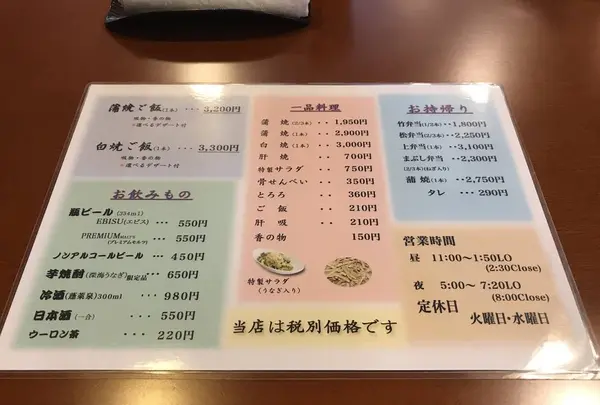 蒲焼ご飯(1本) ・・・ 3,200円
吸物・香の物
・選べるデザート付
白焼ご飯(1本) ・・・ 3,300円
吸物・香の物
・選べるデザート付
お飲みもの
瓶ビール(334ml)
EBISU(エビス) ・・・ 550円
PREMIUM MALT'S
(プレミアムモルツ) ・・・ 550円
ノンアルコールビール ・・・ 450円
芋焼酎(深海うなぎ)限定品 ・・・ 650円
冷酒(蓬莱泉)300ml ・・・ 980円
日本酒(一合) ・・・ 550円
ウーロン茶 ・・・ 220円
一品料理
蒲焼(2/3本) ・・ 1,950円
蒲焼(1本) ・・ 2,900円
白焼(1本) ・・ 3,000円
肝焼 ・・ 700円
特製サラダ ・・ 750円
骨せんべい ・・ 350円
とろろ ・・ 360円
ご飯 ・・ 210円
肝吸 ・・ 210円
香の物 150円
特製サラダ
(うなぎ入り)
当店は税別価格です
お持帰り
竹弁当(1/2本)・・1,800円
松弁当(2/3本)・・2,250円
上弁当(1本)・・3,100円
まぶし弁当・・2,300円
(2/3本)(ねぎ入り)
蒲焼(1本)・・2,750円
タレ ・・290円
営業時間
昼 11:00～1:50LO
(2:30Close)
夜 5:00～ 7:20LO
(8:00Close)
定休日
火曜日・水曜日